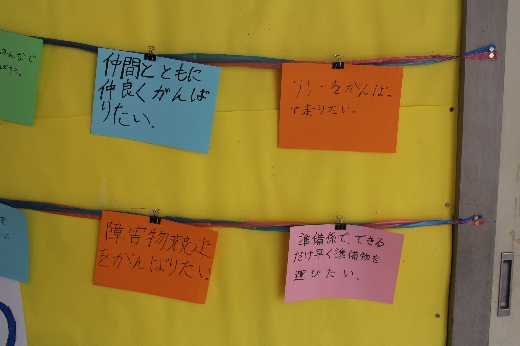 仲間とともに
仲良くがんば
りたい。
リレーをがんばっ
て走りたい。
障害物競走
をがんばりたい。
準備係で、できる
だけ早く準備物を
運びたい。